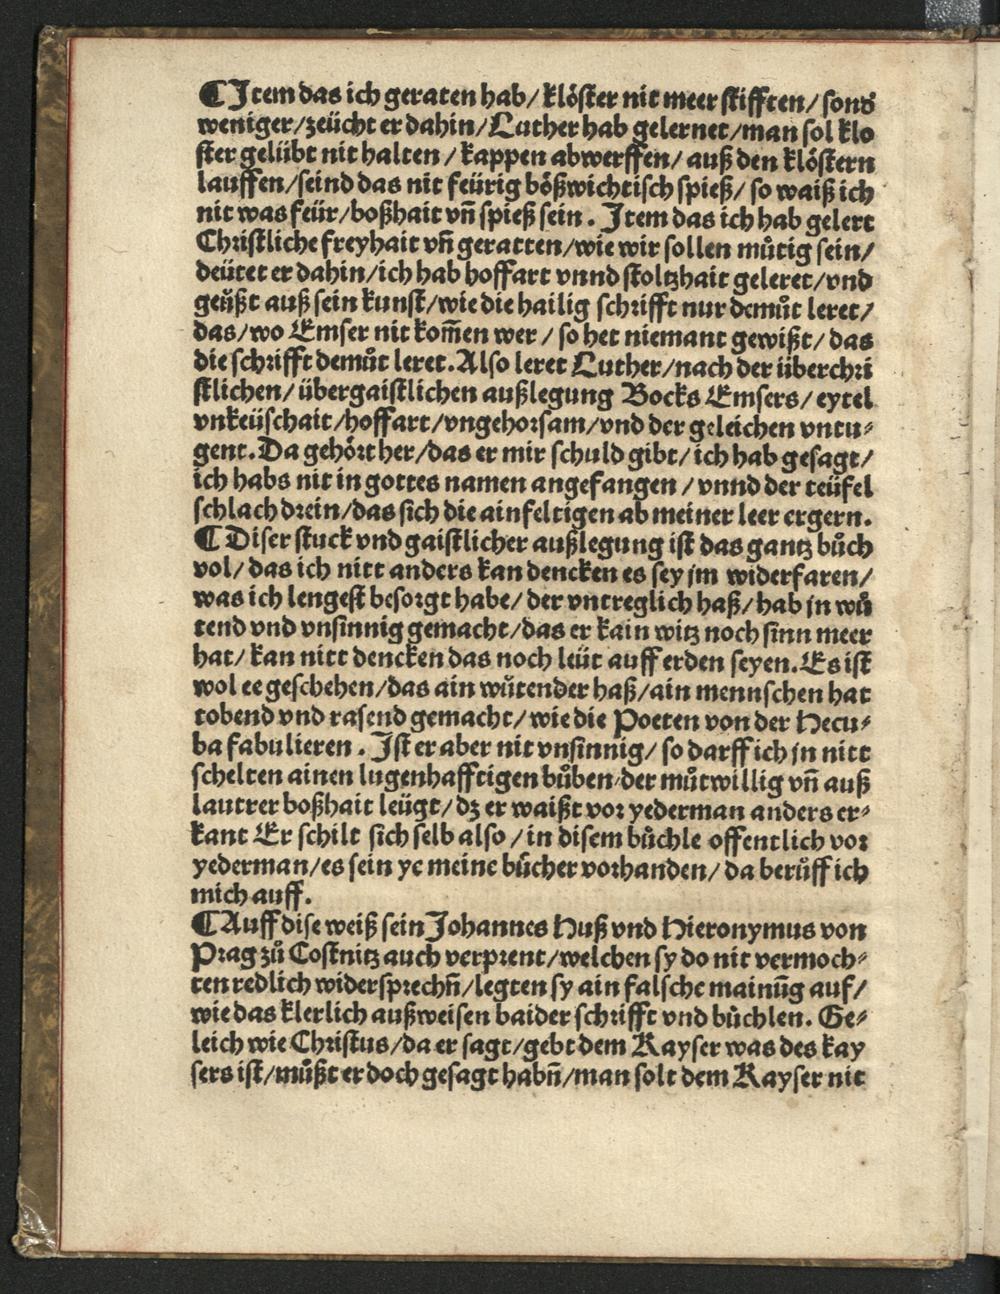 ⸿ Item das ich geraten hab/ klöster nit meer stifften/ sond
weniger/ zeücht er dahin/ Luther hab gelernet/ man sol klo
ster gelübt nit halten/ kappen abwerffen/ auß den klöstern
lauffen/ seind das nit feürig bößwichtisch spieß/ so waiß ich
nit was feür/ boßhait vñ spieß sein. Item das ich hab gelert
Christliche freyhait vñ geratten/ wie wir sollen můtig sein/
deütet er dahin/ ich hab hoffart vnnd stoltzhait geleret/ vnd
geüßt auß sein kunst/ wie die hailig schrifft nur demůt leret/
das/ wo Emser nit kom̃en wer/ so het niemant gewißt/ das
die schrifft demůt leret. Also leret Luther/ nach der überchri
stlichen/ übergaistlichen außlegung Bocks Emsers/ eytel
vnkeüschait/ hoffart/ vngehorsam/ vnd der geleichen vntu⸗
gent. Da gehört her/ das er mir schuld gibt/ ich hab gesagt/
ich habs nit in gottes namen angefangen/ vnnd der teüfel
schlach drein/ das sich die ainfeltigen ab meiner leer ergern.
⸿ Diser stuck vnd gaistlicher außlegung ist das gantz bůch
vol/ das ich nitt anders kan dencken es sey jm widerfaren/
was ich lengest besorgt habe/ der vntreglich haß/ hab jn wů
tend vnd vnsinnig gemacht/ das er kain witz noch sinn meer
hat/ kan nitt dencken das noch leüt auff erden seyen. Es ist
wol ee geschehen/ das ain wůtender haß/ ain mennschen hat
tobend vnd rasend gemacht/ wie die Poeten von der Hecu⸗
ba fabulieren. Ist er aber nit vnsinnig/ so darff ich jn nitt
schelten ainen lugenhafftigen bůben der můtwillig vñ auß
lautrer boßhait leügt/ dz er waißt vor yederman anders er⸗
kant Er schilt sich selb also/ in disem bůchle offentlich vor
yederman/ es sein ye meine bücher vorhanden/ da berůff ich
mich auff.
⸿ Auff dise weiß sein Johannes Huß vnd Hieronymus von
Prag zů Costnitz auch verprent/ welchen sy do nit vermoch⸗
ten redlich widersprechñ/ legten sy ain falsche mainũg auf/
wie das klerlich außweisen baider schrifft vnd bůchlen. Ge⸗
leich wie Christus/ da er sagt/ gebt dem Kayser was des kay
sers ist/ můßt er doch gesagt habñ/ man solt dem Kayser nit